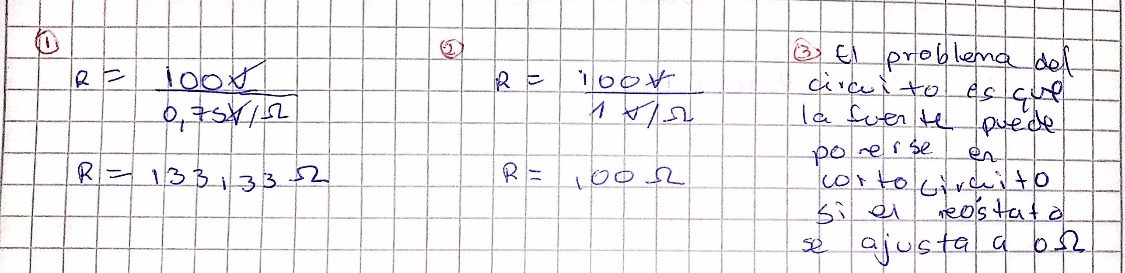 ①
R = 100V / 0,75V/Ω
R = 133,33 Ω
②
R = 100V / 1 V/Ω
R = 100 Ω
③ El problema del
circuito es que
la fuente puede
ponerse en
cortocircuito
si el reóstato
se ajusta a 0Ω